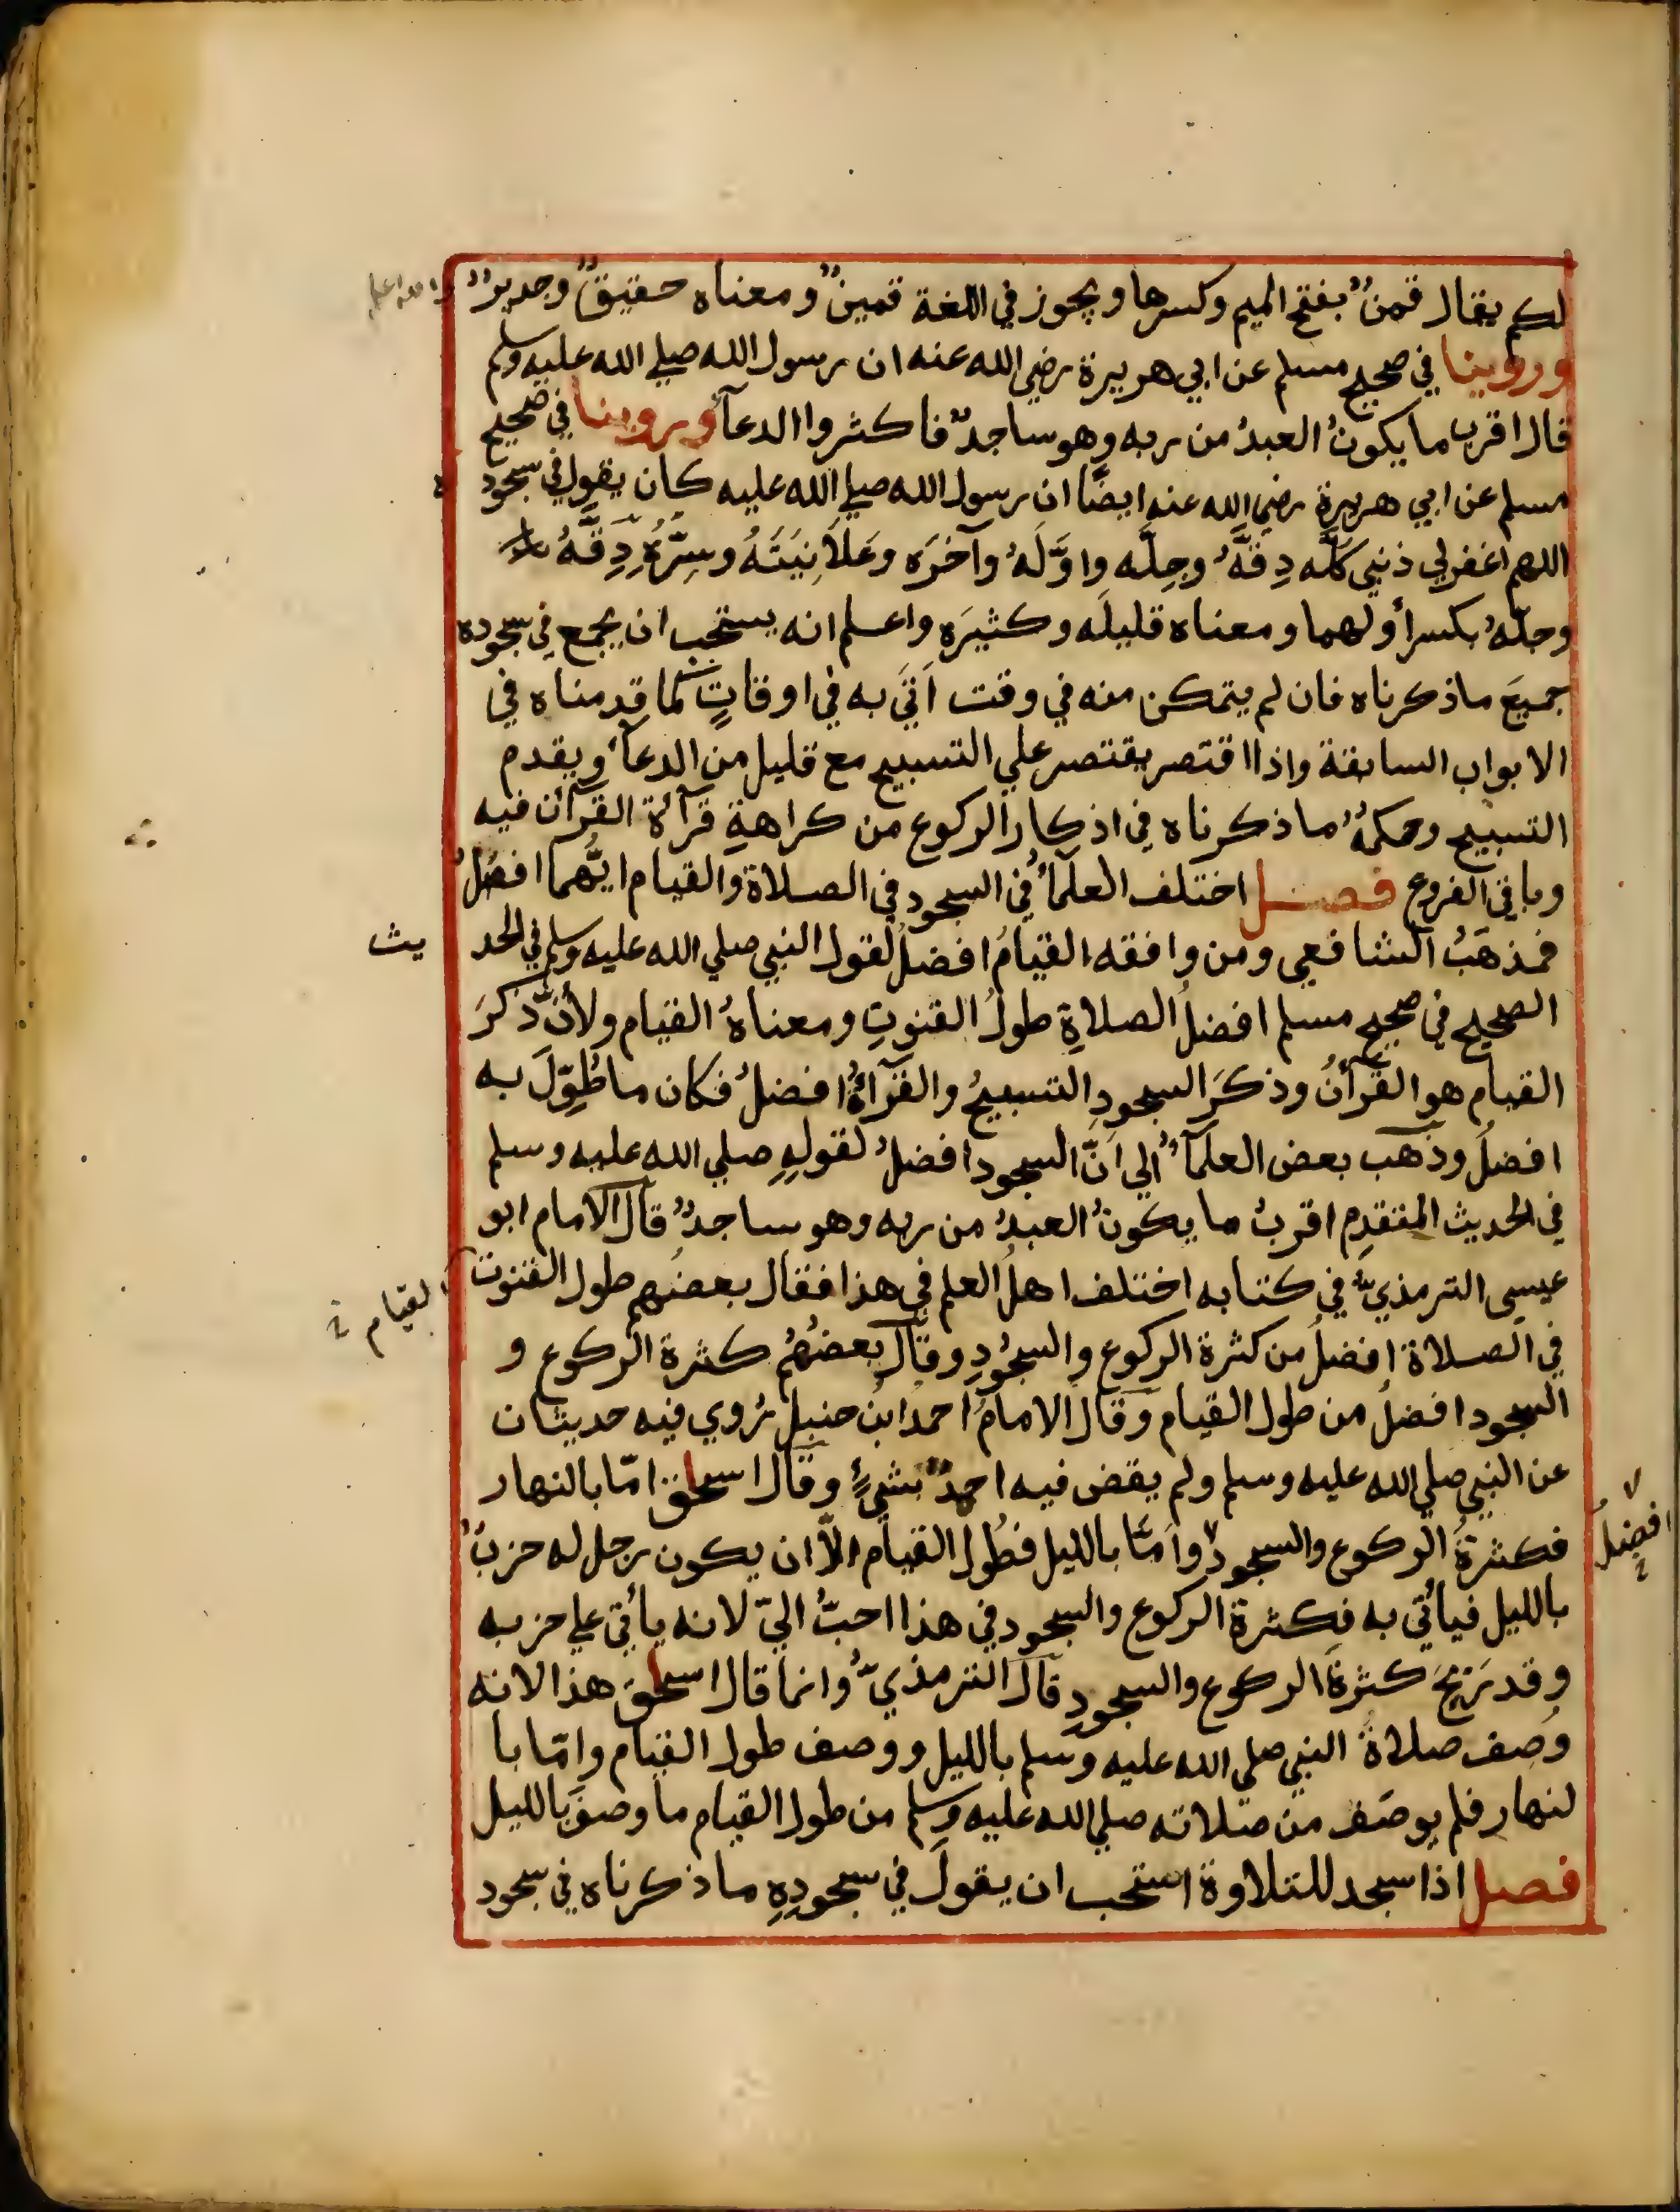 لكم يقال قمنٌ بفتح الميم وكسرها ويجوز في اللغة قمينٌ ومعناه حقيقٌ وجديرٌ والله اعلم
وروينا في صحيح مسلم عن ابي هريرة رضي الله عنه ان رسول الله صلي الله عليه وسلم
قال اقرب ما يكونُ العبدُ من ربه وهو ساجدٌ فاكثروا الدعآء وروينا في صحيح
مسلم عن ابي هريرة رضي الله عنه ايضًا ان رسول الله صلي الله عليه كان يقول في سجوده
اللهم اغفر لي ذنبي كلَّه دِقَّهُ وجِلَّه واوَّلَهُ وآخرَه وعَلَانِيَتَهُ وسِرَّهُ دِقَّهُ
وجلّهُ بكسر أولهما ومعناه قليلَه وكثيرَه واعلم انه يستحب ان يجمع في سجوده
جميعَ ما ذكرناه فان لم يتمكن منه في وقت اَتَي به في اوقاتٍ كما قدمناه في
الابواب السابقة واذا اقتصر يقتصر علي التسبيح مع قليل من الدعآء ويقدم
التسبيح وحكمهُ ما ذكرناه في اذكار الركوع من كراهةِ قرآءة القرآن فيه
وباقي الفروع فصل اختلف العلمآءُ في السجود في الصلاة والقيام ايُّهما افضلُ
فمذهَبُ الشافعي ومن وافقه القيامُ افضلُ لقول النبي صلي الله عليه وسلم في الحد يث
الصحيح في صحيح مسلم افضلُ الصلاةِ طولُ القنوتِ ومعناهُ القيام ولأنّ ذكرَ
القيام هو القرآنُ وذكرَ السجودِ التسبيحُ والقرآءةُ افضلُ فكان ما طُوِّلَ به
افضلُ وذهب بعض العلمآءُ الي اَنّ السجود افضلُ لقولِهِ صلي الله عليه وسلم
في الحديث المتقدِم اقربُ ما يكونُ العبدُ من ربه وهو ساجدٌ قال الامام ابو
عيسى الترمذيّ في كتابه اختلف اهلُ العلم في هذا فقال بعضُهم طول القنوت
القيام
في الصلاة افضلُ من كثرة الركوع والسجُودِ وقال بعضُهُم كثرة الركوع و
السجود افضلُ من طول القيام وقال الامامُ احمدُ ابنُ حنبل رُوي فيه حديثان
عن النبي صلي الله عليه وسلم ولم يقض فيه احدٌ بشيءٍ وقال اسحٰق امّا بالنهار
فكثرةُ الركوع والسجود وامّا بالليل فطُول القيام الاّ ان يكون رجل له حزبٌ
افضلُ
بالليل فيأتي به فكثرة الركوع والسجود في هذا احبُّ اليّ لانه يأتي علي حزبه
وقد رَبِحَ كثرةَ الركوع والسجودِ قال الترمذيُّ وانما قال اسحٰق هذا لانه
وُصِف صلاةُ النبي صلي الله عليه وسلم بالليل ووصف طول القيام وامّا با
لنهار فلم يوصَف من صلاته صلي الله عليه وسلم من طول القيام ما وصفَ بالليل
فصل اذا سجد للتلاوة استحب ان يقولَ في سجودِهِ ما ذكرناه في سجود